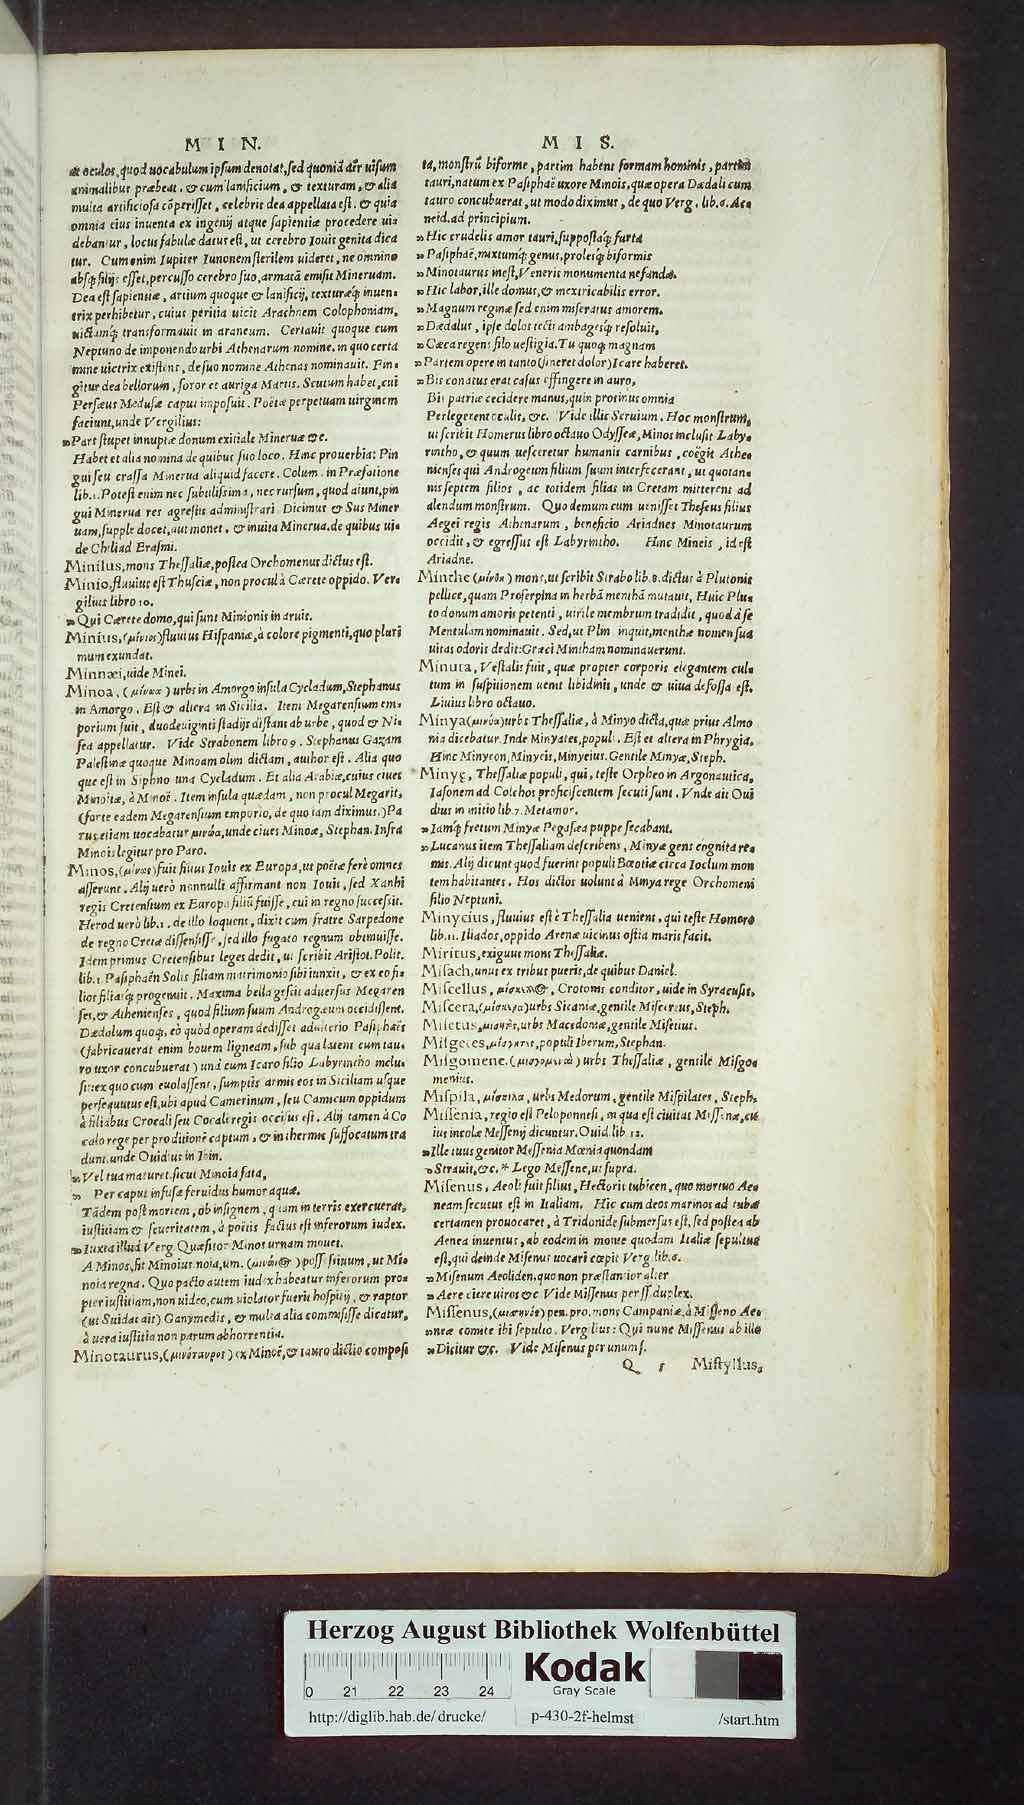 M I N.
at oculos, quod uocabulum ipsum denotat, sed quoniã dẽr uisum
animalibus præbeat, & cum lanificium, & texturam, & alia
multa artificiosa cõperisset, celebris dea appellata est. & quia
omnia eius inuenta ex ingenij atque sapientiæ procedere uide
debantur, locus fabulæ datus est, ut cerebro Iouis genita dica
tur. Cum enim Iupiter Iunonem sterilem uideret, ne omnino
absq; filijs esset, percusso cerebro suo, armatã emisit Mineruam.
Dea est sapientiæ, artium quoque & lanificij, texturæq; inuen=
trix perhibetur, cuius peritia uicit Arachnem Colophoniam,
uictamq; transformauit in araneum. Certauit quoque cum
Neptuno de imponendo urbi Athenarum nomine. in quo certa
mine uictrix existens, de suo nomine Athenas nominauit. Fin=
gitur dea bellorum, soror et auriga Martis. Scutum habet, cui
Persæus Medusæ caput imposuit. Poëtæ perpetuam uirginem
faciunt, unde Vergilius:
»Pars stupet innuptæ donum exitiale Mineruæ &c.
Habet et alia nomina de quibus suo loco. Hinc prouerbia: Pin
gui seu crassa Minerua aliquid facere. Colum. in Præfatione
lib.1. Potest enim nec subtilissima, nec rursum, quod aiunt, pin
gui Minerua res agrestis administrari. Dicimus & Sus Miner
uam, supple docet, aut monet, & inuita Minerua. de quibus ui=
de Chiliad Erasmi.
Minilus, mons Thessaliæ, postea Orchomenus dictus est.
Minio, fluuius est Thusciæ, non procul à Cærete oppido. Ver=
gilius libro 10.
»Qui Cærete domo, qui sunt Minionis in aruit.
Minius, (μίνιος) fluuius Hispaniæ, à colore pigmenti, quo pluri
mum exundat.
Minnæi, uide Minei.
Minoa, (μίνωα) urbs in Amorgo insula Cycladum, Stephanus
in Amorgo. Est & altera in Sicilia. Item Megarensium em=
porium fuit, duodeuiginti stadijs distans ab urbe, quod & Ni=
sea appellatur. Vide Strabonem libro 9. Stephanus Gazam
Palestinæ quoque Minoam olim dictam, author est. Alia quo
que est in Siphno una Cycladum. Et alia Arabiæ, cuius ciues
Minoitæ, à Minoë. Item insula quædam, non procul Megaris,
(forte eadem Megarensium emporio, de quo iam diximus.) Pa
rus etiam uocabatur μινώα, unde ciues Minoæ, Stephan. Infra
Minois legitur pro Paro.
Minos, (μίνως) fuit filius Iouis ex Europa, ut poëtæ ferè omnes
asserunt. Alij uerò nonnulli affirmant non Iouis, sed Xanthi
regis Cretensium ex Europa filiũ fuisse, cui in regno successit.
Herod uerò lib.1. de illo loquens, dixit cum fratre Sarpedone
de regno Cretæ dissensisse, sed illo fugato regnum obtinuisse.
Idem primus Cretensibus leges dedit, ut scribit Aristot. Polit.
lib.1 Pasiphaën Solis filiam matrimonio sibi iunxit, & ex eo fi=
lios filiasq; progenuit. Maxima bella gessit aduersus Megaren
ses, & Athenienses, quod filium suum Androgæum occidissent.
Dædalum quoq;, eò quòd operam dedisset adulterio Pasiphaës
(fabricauerat enim bouem ligneam, sub qua latens cum tau=
ro uxor concubuerat) unà cum Icaro filio Labyrintho inclu=
sit: ex quo cum euolassent, sumptis armis eos in Siciliam usque
persequutus est, ubi apud Camerinum, seu Camicum oppidum
à filiabus Crocali seu Cocali regis occisus est. Alij tamen à Co
calo rege per proditionẽ captum, & in thermis suffocatum tra
dunt. unde Ouidius in Ibin.
»Vel tua maturet, sicut Minoia fata,
» Per caput infusæ feruidus humor aquæ.
Tãdem post mortem, ob insignem, quam in terris exercuerat,
iustitiam & seueritatem, à poëtis factus est inferorum iudex.
»Iuxta illud Verg. Quæsitor Minos urnam mouet.
A Minos, fit Minoius, noia, um. possessiuum, ut Mi=
noia regna. Quo pacto autem iudex habeatur inferorum pro=
pter iustitiam, non uideo, cum uiolator fuerit hospitij, & raptor
(ut Suidas ait) Ganymedis, & multa alia commisisse dicatur,
à uera iustitia non parum abhorrentia.
Minotaurus, (μινόταυρος) ex Minoë, & tauro dictio composi
M I S.
ta, monstrũ biforme, partim habens formam hominis, partim
tauri, natum ex Pasiphaë uxore Minois, quæ opera Dædali cum
tauro concubuerat, ut modo diximus, de quo Verg. lib.6. Ae=
neid. ad principium.
»Hic crudelis amor tauri, suppostaq; furta
»Pasiphaë, mixtumq; genus, prolesq; biformis
»Minotaurus inest, Veneris monumenta nefandæ.
»Hic labor, ille domus, & inextricabilis error.
»Magnum reginæ sed enim miseratus amorem,
»Dædalus, ipse dolos tecti ambagesq; resoluit,
»Cæca regens filo uestigia. Tu quoq; magnam
»Partem opere in tanto (sineret dolor) Icare haberet.
»Bis conatus erat casus effingere in auro,
Bis patriæ cecidere manus, quin protinus omnia
Perlegerent oculis, &c. Vide illic Seruium. Hoc monstrum,
ut scribit Homerus libro octauo Odysseæ, Minos inclusit Laby=
rintho, & quum uesceretur humanis carnibus, coëgit Athe=
nienses qui Androgeum filium suum interfecerant, ut quotan=
nis septem filios, ac totidem filias in Cretam mitterent ad
alendum monstrum. Quo demum cum uenisset Theseus filius
Aegei regis Athenarum, beneficio Ariadnes Minotaurum
occidit, & egressus est Labyrintho. Hinc Mineis, id est
Ariadne.
Minthe (μίνθη) mons, ut scribit Strabo lib.8. dictus à Plutonis
pellice, quam Proserpina in herbã menthã mutauit. Huic Plu=
to donum amoris petenti, uirile membrum tradidit, quod à se
Mentulam nominauit. Sed, ut Plin inquit, menthæ nomen sua
uitas odoris dedit: Græci Mintham nominauerunt.
Minuta, Vestalis fuit, quæ propter corporis elegantem cul=
tum in suspitionem uenit libidinis, unde & uiua defossa est.
Liuius libro octauo.
Minya (μινύα) urbs Thessaliæ, à Minyo dicta, quæ prius Almo
nia dicebatur. Inde Minyates, populi. Est et altera in Phrygia.
Hinc Minyeon, Minyeis, Minyeius. Gentile Minyæ, Steph.
Minyę, Thessaliæ populi, qui, teste Orpheo in Argonautica,
Iasonem ad Colchos proficiscentem secuti sunt. Vnde ait Oui
dius in initio lib.7. Metamor.
»Iamq; fretum Minyæ Pegasea puppe secabant.
»Lucanus item Thessaliam describens, Minyæ gens cognita re=
mis. Alij dicunt quod fuerint populi Bœotiæ circa Ioclum mon
tem habitantes. Hos dictos uolunt à Minya rege Orchomeni
filio Neptuni.
Minycius, fluuius est è Thessalia uenient, qui teste Homero
lib.11. Iliados, oppido Arenæ uicinus ostia maris facit.
Miritus, exiguus mons Thessaliæ.
Misach, unus ex tribus pueris, de quibus Daniel.
Miscellus, Crotonis conditor, uide in Syracusis.
Miscera, (μίσκερα) urbs Sicaniæ, gentile Misceræus, Steph.
Misetus, urbs Macedoniæ, gentile Misetius.
Misgetes, μίσγητες, populi Iberum, Stephan.
Misgomene, (μισγομεναὶ) urbs Thessaliæ, gentile Misgo=
menius.
Mispila, μίσπιλα, urbs Medorum, gentile Mispilates, Steph.
Missenia, regio est Peloponnesi, in qua est ciuitas Messenæ, cu
ius incolæ Messenij dicuntur. Ouid. lib 12.
»Ille tuus genitor Messenia Mœnia quondam
»Strauit, &c. * Lego Messene, ut supra.
Misenus, Aeoli fuit filius, Hectoris tubicen, quo mortuo Ae=
neam secutus est in Italiam. Hic cum deos marinos ad tubæ
certamen prouocaret, à Tridonide submersus est, sed postea ab
Aenea inuentus, ab eodem in monte quodam Italiæ sepultus
est, qui deinde Misenus uocari cœpit Verg. lib.6.
»Misenum Aeoliden, quo non præstantior alter
»Aere ciere uiros &c Vide Missenus per ss. duplex.
Missenus, (μισηνός) pen. pro. mons Campaniæ, à Misseno Ae=
»neæ comite ibi sepulto. Vergilius: Qui nunc Missenus ab illo
»Dicitur &c. Vide Misenus per unum s.
Q 5 Mistyllus,
Herzog August Bibliothek Wolfenbüttel
0 21 22 23 24
Kodak
Gray Scale
http://diglib.hab.de/drucke/ p-430-2f-helmst /start.htm